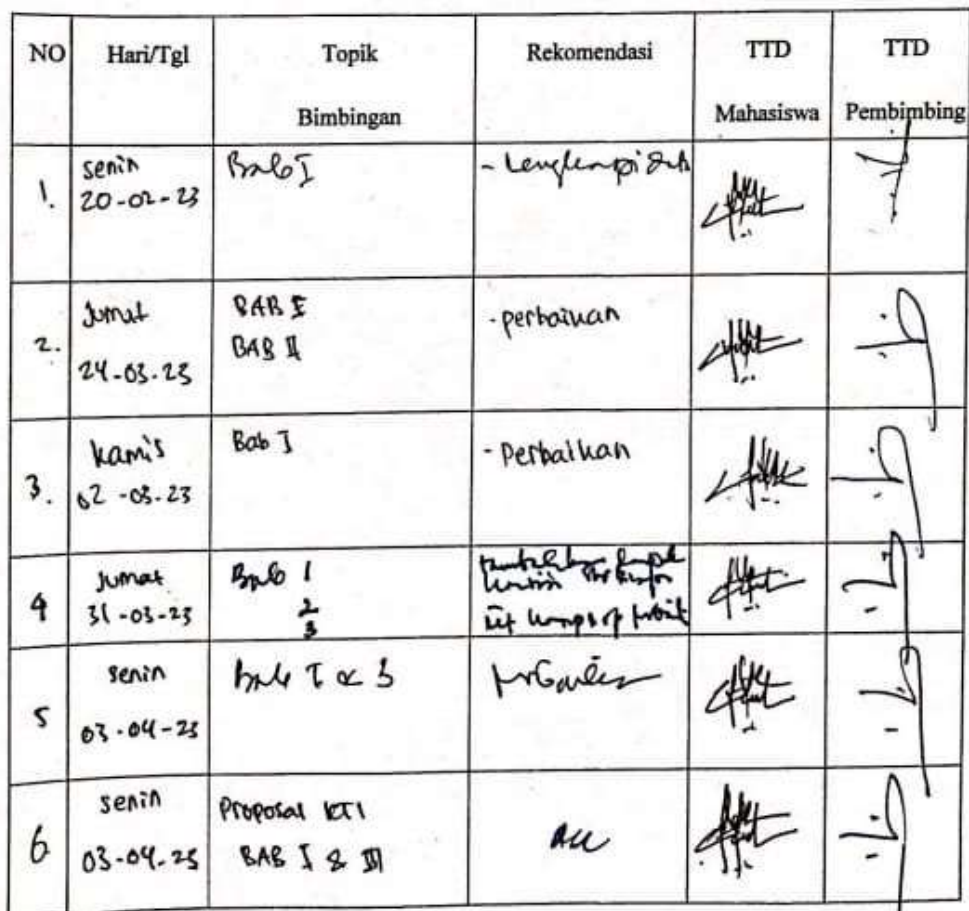 NO Hari/Tgl Topik Bimbingan Rekomendasi TTD Mahasiswa TTD Pembimbing
1. senin 20-02-23 Bab I - Lengkapi data
2. Jumat 24-03-23 BAB I BAB II - perbaikan
3. kamis 02-03-23 Bab I - Perbaikan
4 Jumat 31-03-23 Bab 1 2 3
5 senin 03-04-23 Bab I & 3
6. senin 03-04-23 Proposal KTI BAB I & III acc